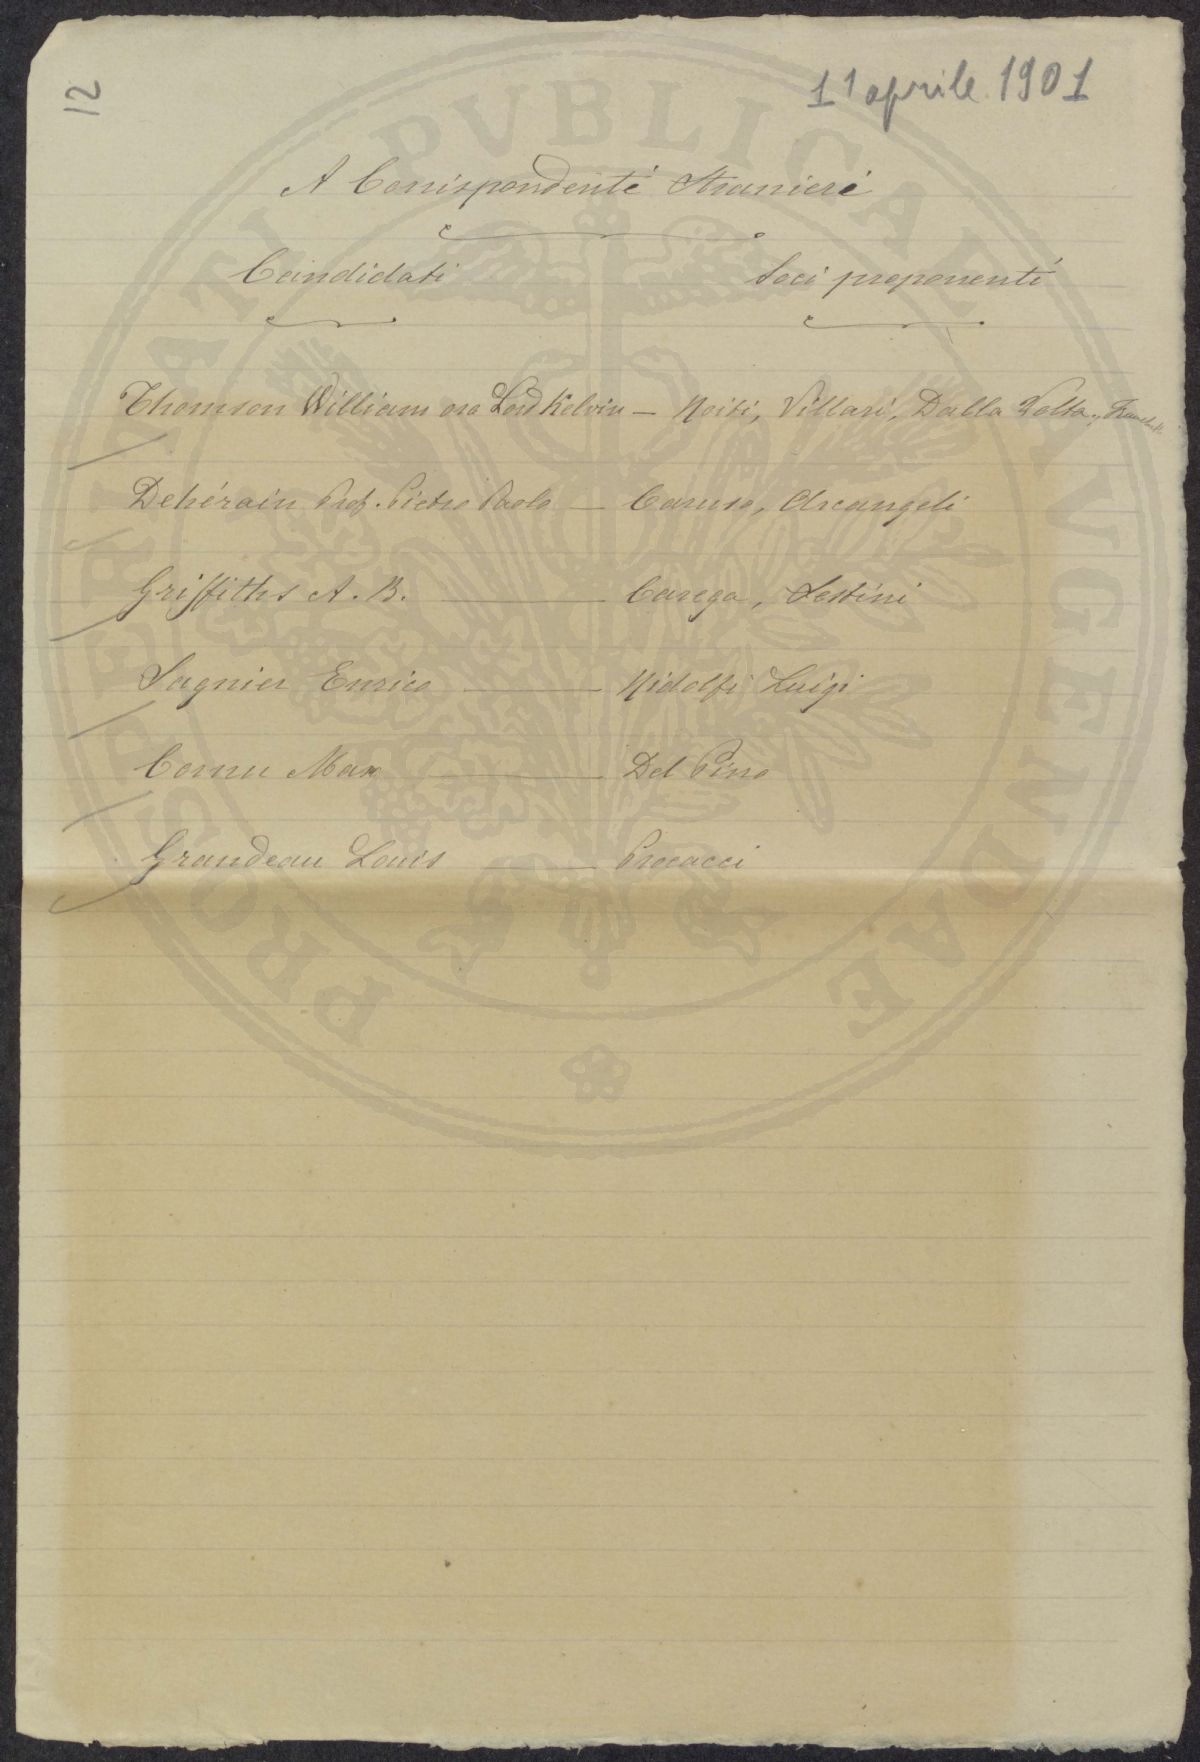 12
11 aprile 1901
A Corrispondenti Stranieri
Candidati Soci proponenti
Thomson William ora Lord Kelvin — Roiti, Villari, Dalla Volta,
Dehérain Prof. Pietro Paolo — Caruso, Arcangeli
Griffiths A. B. — Carega, Sestini
Sagnier Enrico — Ridolfi Luigi
Cornu Max — Del Pino
Grandeau Louis — Procacci
PROSPERITATI PVBLICAE AVGENDAE